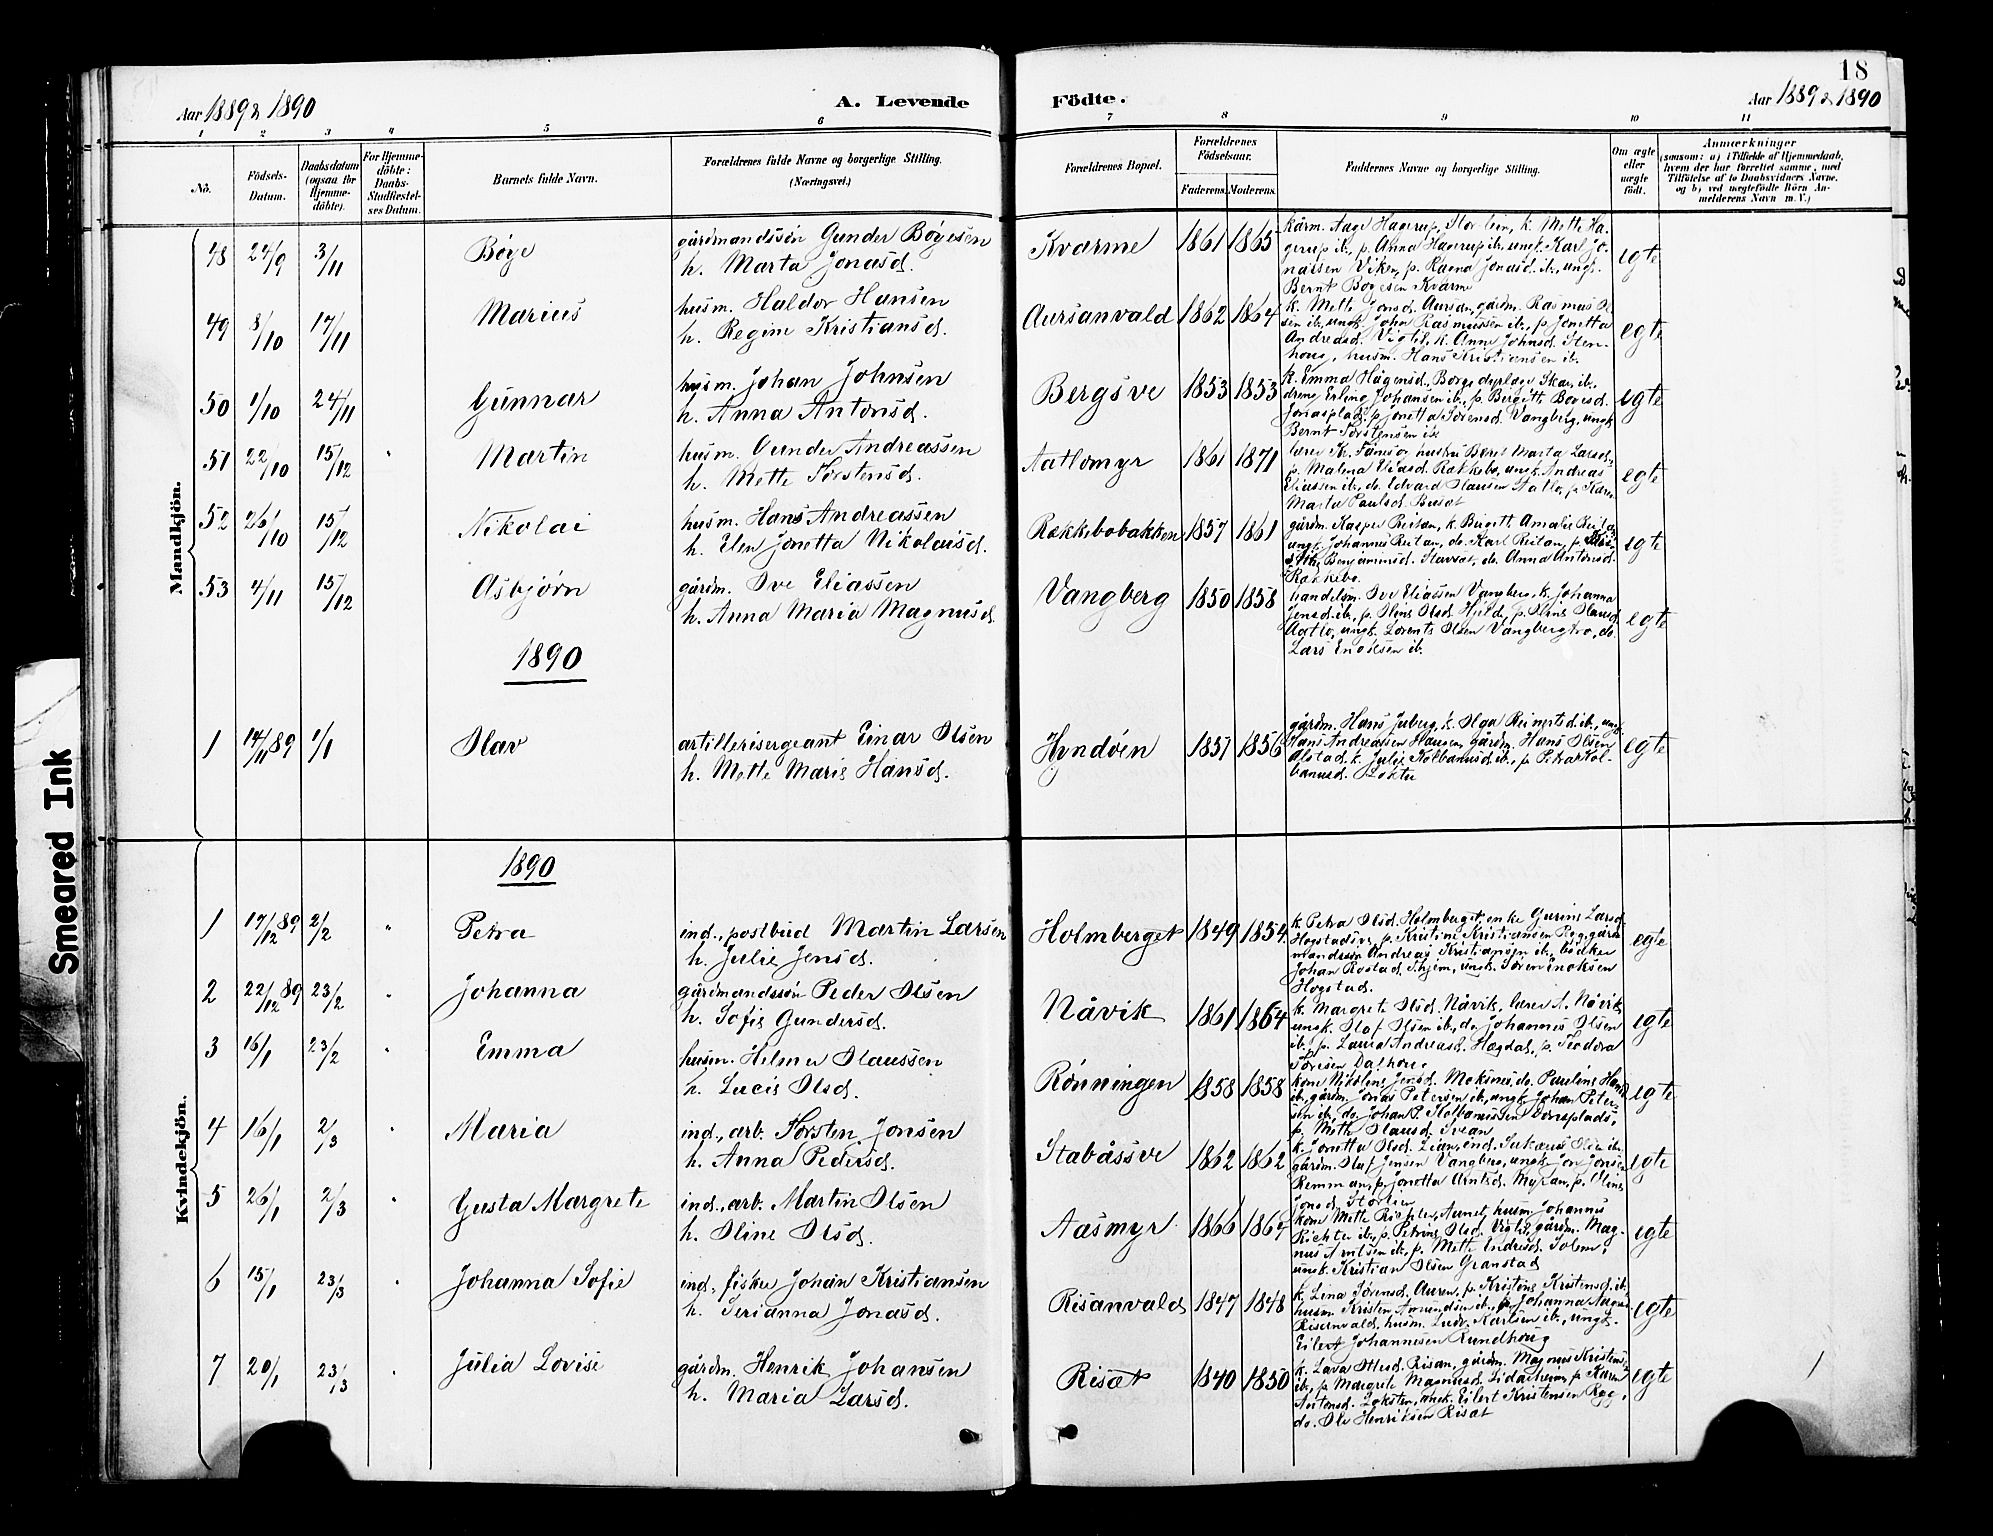 18
Aar 1889 & 1890
A. Levende
Födte.
Aar 1889 & 1890
1 2 3 4 5 6 7 8 9 10 11
No.
Födsels-Datum.
Daabsdatum (ogsaa for Hjemme-döbte).
For Hjemme-döbte: Daabs-Stadfæstel-ses Datum.
Barnets fulde Navn.
Forældrenes fulde Navne og borgerlige Stilling. (Næringsvei.)
Forældrenes Bopæl.
Forældrenes Födselsaar.
Faderens. Moderens.
Faddernes Navne og borgerlige Stilling.
Om ægte eller uægte födt.
Anmærkninger
(saasom: a) i Tilfælde af Hjemmedaab, hvem der har forrettet samme, med Tilföielse af to Daabsvidners Navne, og b) ved uægtefödte Börn An-melderens Navn m. V.)
Mandkjön.
48 24/9 3/11 Böye gårdmandssön Gunder Böyesen
h. Marta Jonasd. Kvarme 1861 1865 egte
kårm. Aage Hagerup, Storlein, k. Mette Ha-
gerup ib., p. Anna Hagerup ib., ungk. Karl Jo-
nassen Viken, p. Ragna Jonasd. ib., ungk.
Bernt Böyesen Kvarm
49 8/10 17/11 Marius husm. Haldor Hansen
h. Regine Kristiansd. Aursanvald 1862 1864 egte
k. Mette Jonsd. Aursan, gårdm. Rasmus Ol
sen ib., ungk. John Rasmussen ib., p. Jonetta
Andreasd. Vigtil, k. Anne Johnsd. Sten-
houg, husm. Hans Kristiansen ib.
50 1/10 24/11 Gunnar husm. Johan Johnsen
h. Anna Antonsd. Bergsve 1853 1853 egte
k. Emma Hågensd. Skar, ib.,
dreng Erling Johansen ib., p. Bergitte
Jonasplads, p. Jonetta Sörensd. Vangberg, ungk
Bernt Torstensen ib
51 22/10 15/12 " Martin husm. Gunder Andreassen
h. Mette Torstensd. Aatlomyr 1861 1871 egte
lærer K. hustru Beret Marta Larsd.,
p. Malena Eliasd. Rekkebo, ungk. Andreas
Eliassen ib., do. Edvard Hansen Aatlo, p. Karen
Marta Paulsd. Busæt
52 26/10 15/12 Nikolai husm. Hans Andreassen
h. Elen Jonetta Nikolausd. Rekkebobakken 1857 1861 egte
gårdm. Kasper Reitan, k. Birgitt Amalie Reitan,
ungk. Johannes Reitan, do. Karl Reitan, p.
Benjaminsd. Stavsæt, do. Anna Antonsd.
Rekkebo.
53 4/11 15/12 Asbjørn gårdm. Ove Eliassen
h. Anna Maria Magnusd. Vangberg 1850 1858 egte
handelsm. Ove Eliassen Vangberg, k. Johanna
Jensd. ib., p. Oline Olsd. Hjeld, p. Oline Hansd.
Aatlo, ungk. Lorents Olsen Vangbergtrø, do.
Lars Enoksen ib.
1890
1 14/11 89 1/1 Olav artillerisergeant Einar Olsen
h. Mette Marie Hansd. Hyndöien 1857 1856 egte
gårdm. Hans Juberg, k. Olga Reinertsd. ib., ungk.
Hans Andreassen Hansen, gårdm. Hans Olsen
Alstad, k. Julie Kolbanusd. ib., p. Petra Kol-
banusd. Løkta
Kvindekjön.
1890
1 17/12 89 2/2 " Petra ind., postbud Martin Larsen
h. Julie Jensd. Holmberget 1849 1854 egte
k. Petra Olsd. Holmberget, enke Gurine Larsd.
Hogstadsve, p. Kristine Kristiansen Rog, gård-
mandssön Andreas Kristiansen ib., bödker
Johan Rostad, Skjem, ungk. Sören Enoksen
Hogstad.
2 22/12 89 23/2 " Johanna gårdmandssön Peder Olsen
h. Sofie Gundersd. Nåvik 1861 1864 egte
k. Margrete Olsd. Nåvik, lærer A. Nåvik,
ungk. Olaf Olsen ib., do. Johannes Olsen
ib., p. Laura Andreasd. Hægdal, p. Teodora
Dalhoug
3 16/1 23/2 " Emma husm. Helmer Olaussen
h. Lucie Olsd. Rönningen 1858 1858 egte
kone Nikoline Jensd. Moksnes, do. Pauline Hansd
ib., gårdm. Jonas Petersen ib., ungk. Johan Peter-
sen ib., do. Johan P. Kolbanussen
p. Mette Olausd. Svean
4 16/1 2/3 " Maria ind., arb. Torsten Jonsen
h. Anna Pedersd. Stabåssve 1862 1862 egte
k. Jonetta Olsd. Lian, ind. Olsen ib.,
gårdm. Olaf Jensen Vangberg, ungk. Jon Jonsen
Remman, p. Jonetta Arntsd. Myran, p. Oline
Jonsd. Storlien
5 26/1 2/3 " Gusta Margrete ind., arb. Martin Olsen
h. Oline Olsd. Aasmyr 1866 1867 egte
kone Mette Richter, Aunet, husm. Johannes
Richter ib., p. Petrine Olsd. Vigtil, gårdm. Mag-
nus Arntsen ib., p. Mette Indresd. Solem,
ungk. Kristian Olsen Granstad
6 15/1 23/3 " Johanna Sofie ind., fisker Johan Kristiansen
h. Serianna Jonasd. Risanvald 1847 1848 egte
k. Lena Sörensd. Auren, p. Kristine Kristensd. ib.,
husm. Kristen Amundsen ib., p. Johanna
Risanvald, husm. Ludv. Karlsen ib., ungk.
Eilert Johannesen Rundhoug
7 20/1 23/3 " Julia Lovise gårdm. Henrik Johansen
h. Maria Larsd. Risæt 1840 1850 egte
k. Lava Ottesd. Risan, gårdm. Magnus Kristens.
ib., p. Margrete Magnusd. p. Karen
Antonsd. Loksten, ungk. Eilert Kristensen Rog,
do. Ole Henriksen Risæt
Smeared Ink